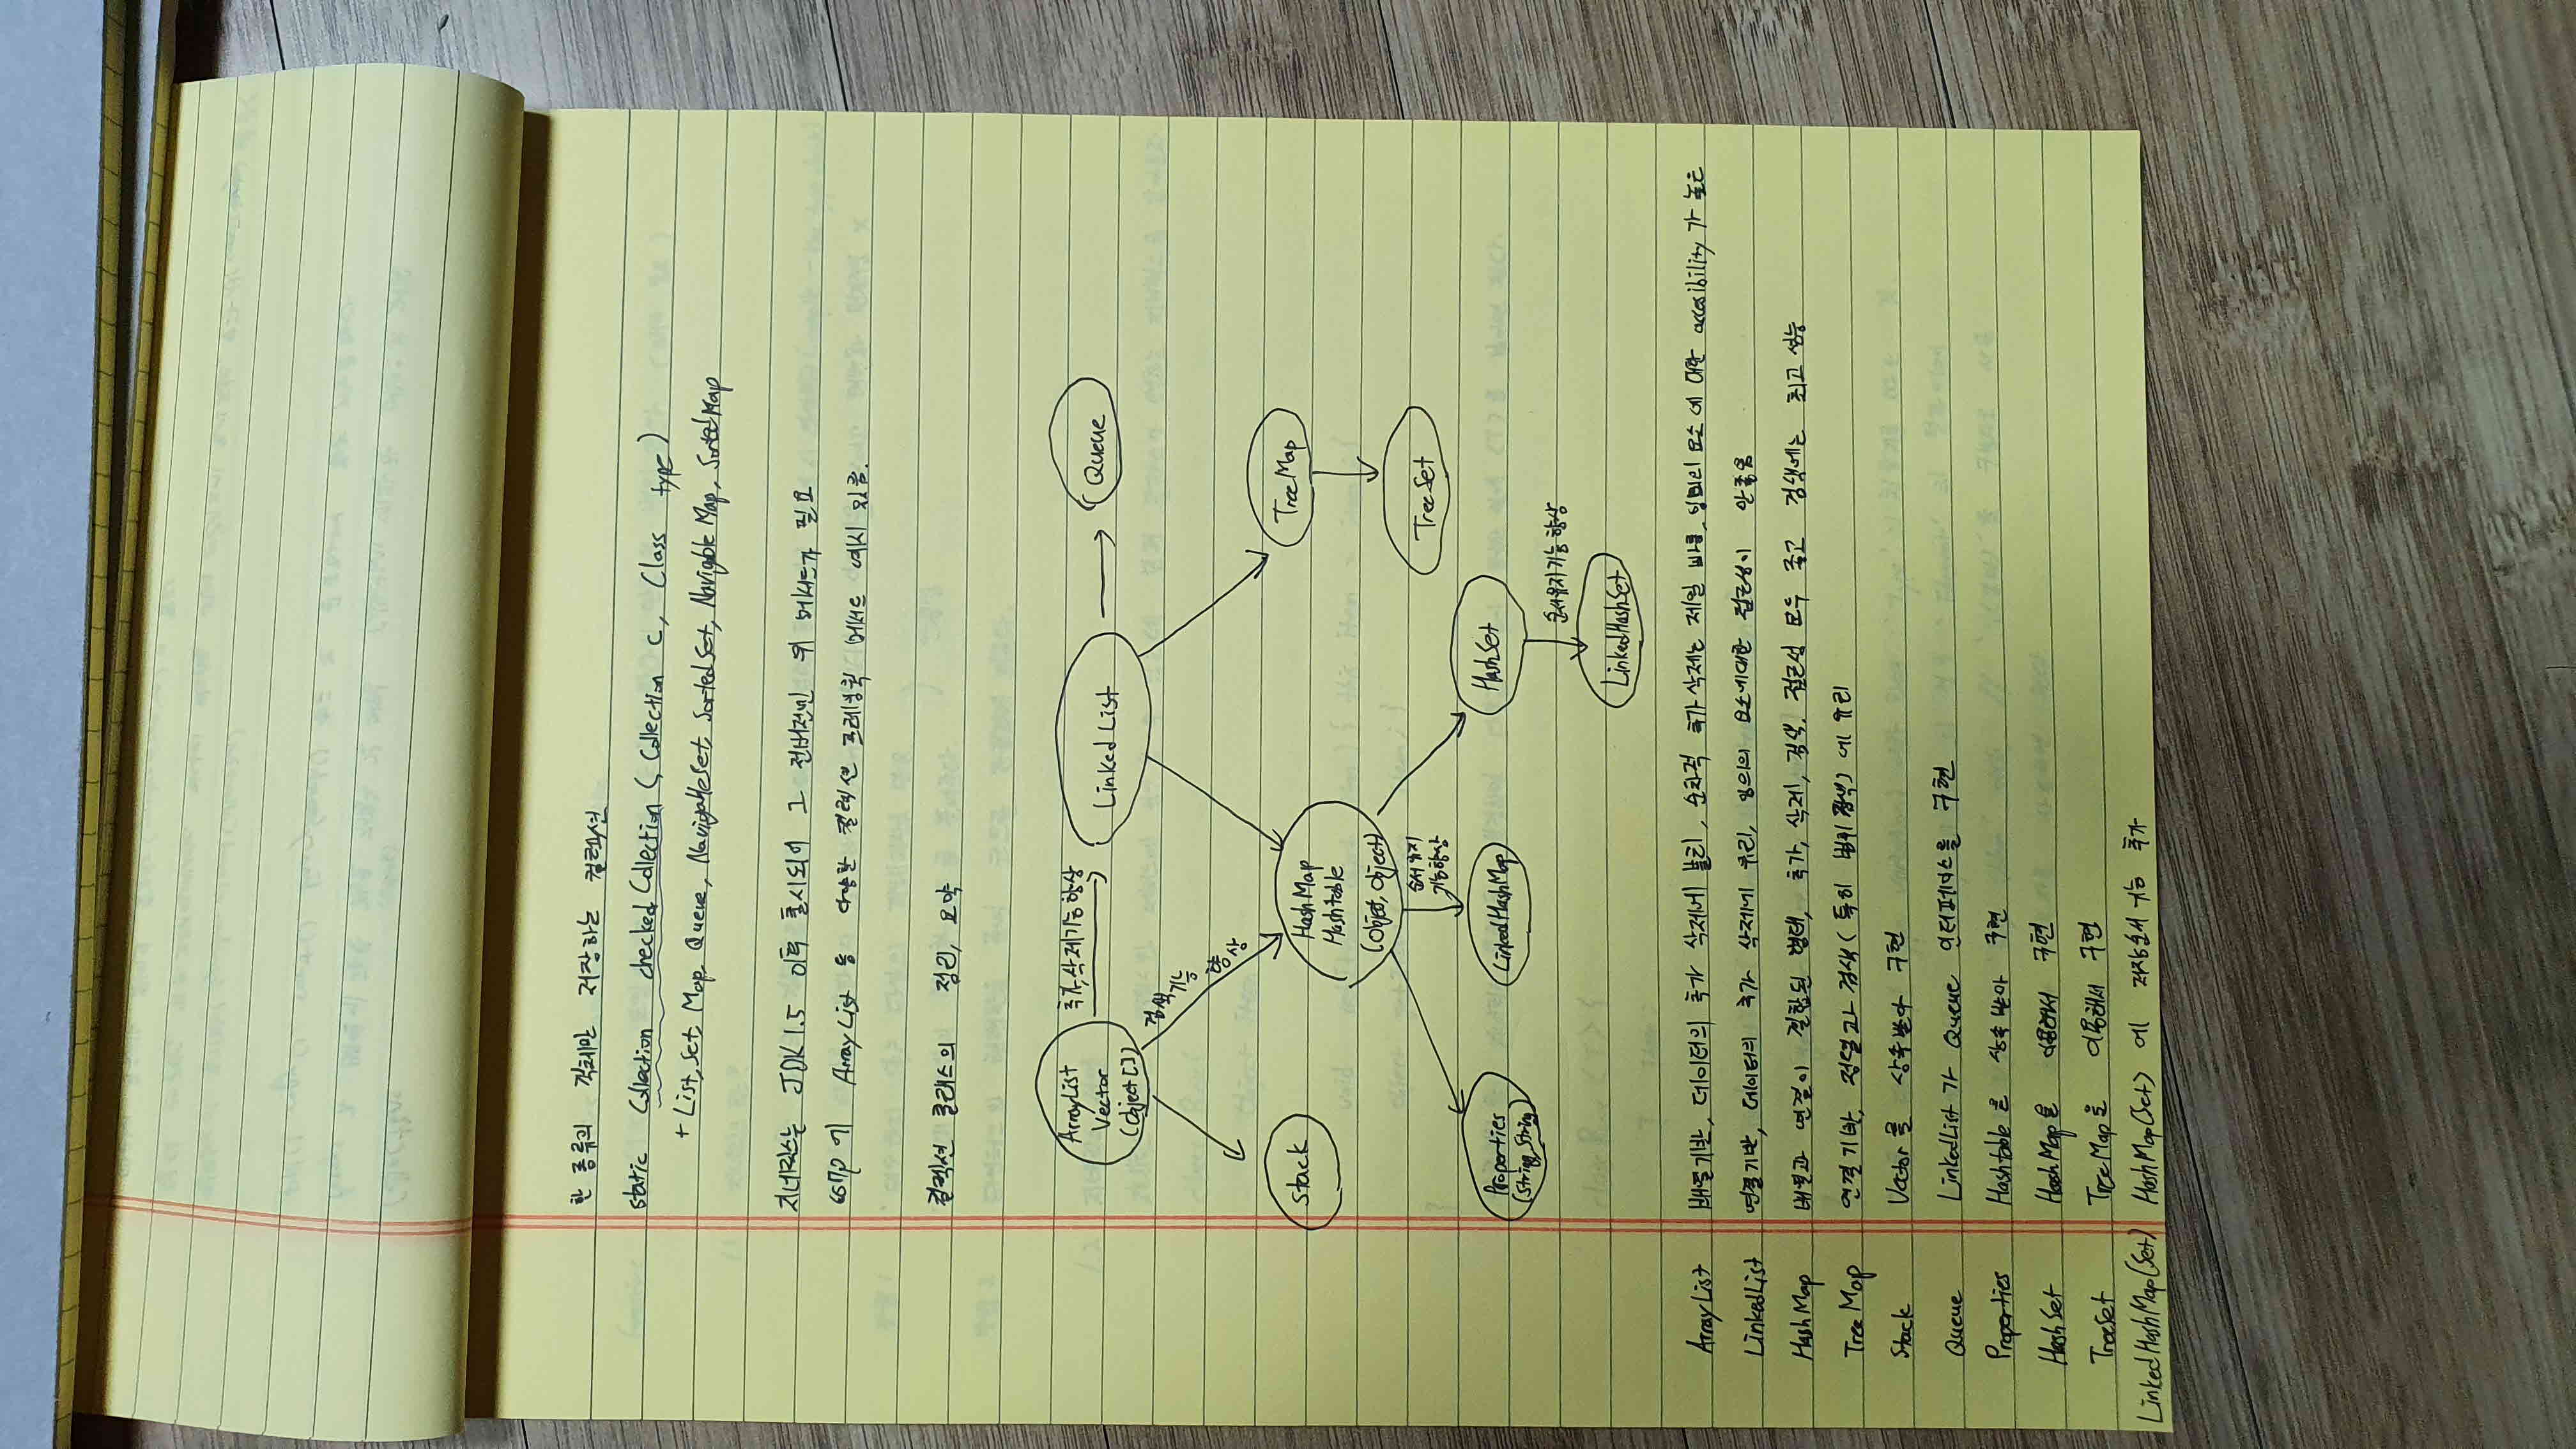 한 종류의 객체만 저장하는 컬렉션
static Collection checkedCollection (Collection c, Class type)
+ List, Set, Map, Queue, NavigableSet, SortedSet, NavigableMap, SortedMap
지네릭스는 JDK1.5 이후 출시되어 그 전버전엔 위 메서드가 필요
657p에 ArrayList 등 다양한 컬렉션 프레임웍 메서드 예시 있음.
컬렉션 클래스의 정리, 요약
ArrayList
Vector
(Object[])
추가,삭제기능향상
LinkedList
Queue
검색기능향상
Stack
HashMap
Hashtable
(Object, Object)
TreeMap
TreeSet
순서유지
기능향상
Properties
(String,String)
LinkedHashMap
HashSet
순서유지기능향상
LinkedHashSet
ArrayList 배열기반, 데이터의 추가 삭제에 불리, 순차적 추가삭제는 제일 빠름, 임의의 요소에 대한 accesibility가 높은
LinkedList 연결기반, 데이터의 추가 삭제에 유리, 임의의 요소에대한 접근성이 안좋음
HashMap 배열과 연결이 결합된 형태, 추가, 삭제, 검색, 접근성 모두 좋고 검색에는 최고 성능
TreeMap 연결기반, 정렬과 검색(특히 범위 검색)에 유리
Stack Vector을 상속받아 구현
Queue LinkedList가 Queue 인터페이스을 구현
Properties Hashtable을 상속받아 구현
HashSet HashMap을 이용해서 구현
TreeSet TreeMap을 이용해서 구현
LinkedHashMap(Set) HashMap(Set)에 저장순서 기능 추가